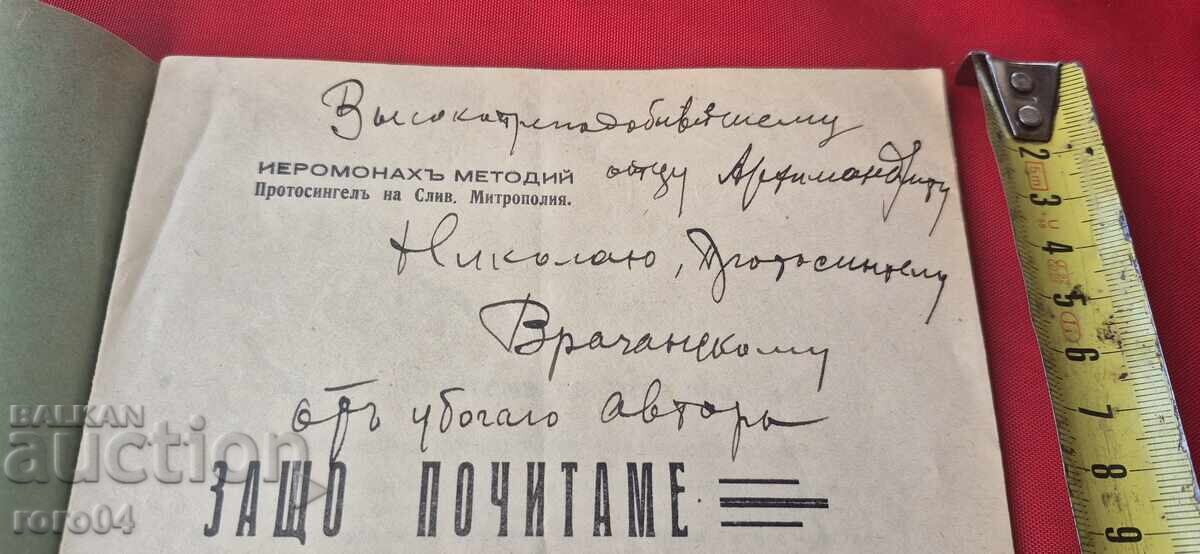 Высокопреподобнѣйшему
ИЕРОМОНАХЪ МЕТОДИЙ
Протосингелъ на Слив. Митрополия.
отцу Архимандриту
Николаю, Протосингелу
Врачанскому
отъ убогаго автора
ЗАЩО ПОЧИТАМЕ
BALKAN
auction
roro04
2
3
4
5
6
7
8
9